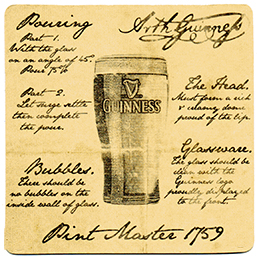 Pouring
Part 1.
With the glass
on an angle of 45°.
Pour 75%
Part 2.
Let surge settle
then complete
the pour.
Bubbles.
There should be
no bubbles on the
inside wall of glass.
Arth Guinness
GUINNESS
The Head.
Must form a rich
& creamy dome
proud of the lip.
Glassware.
The glass should be
clean with the
Guinness logo
proudly displayed
to the front.
Pint Master 1759